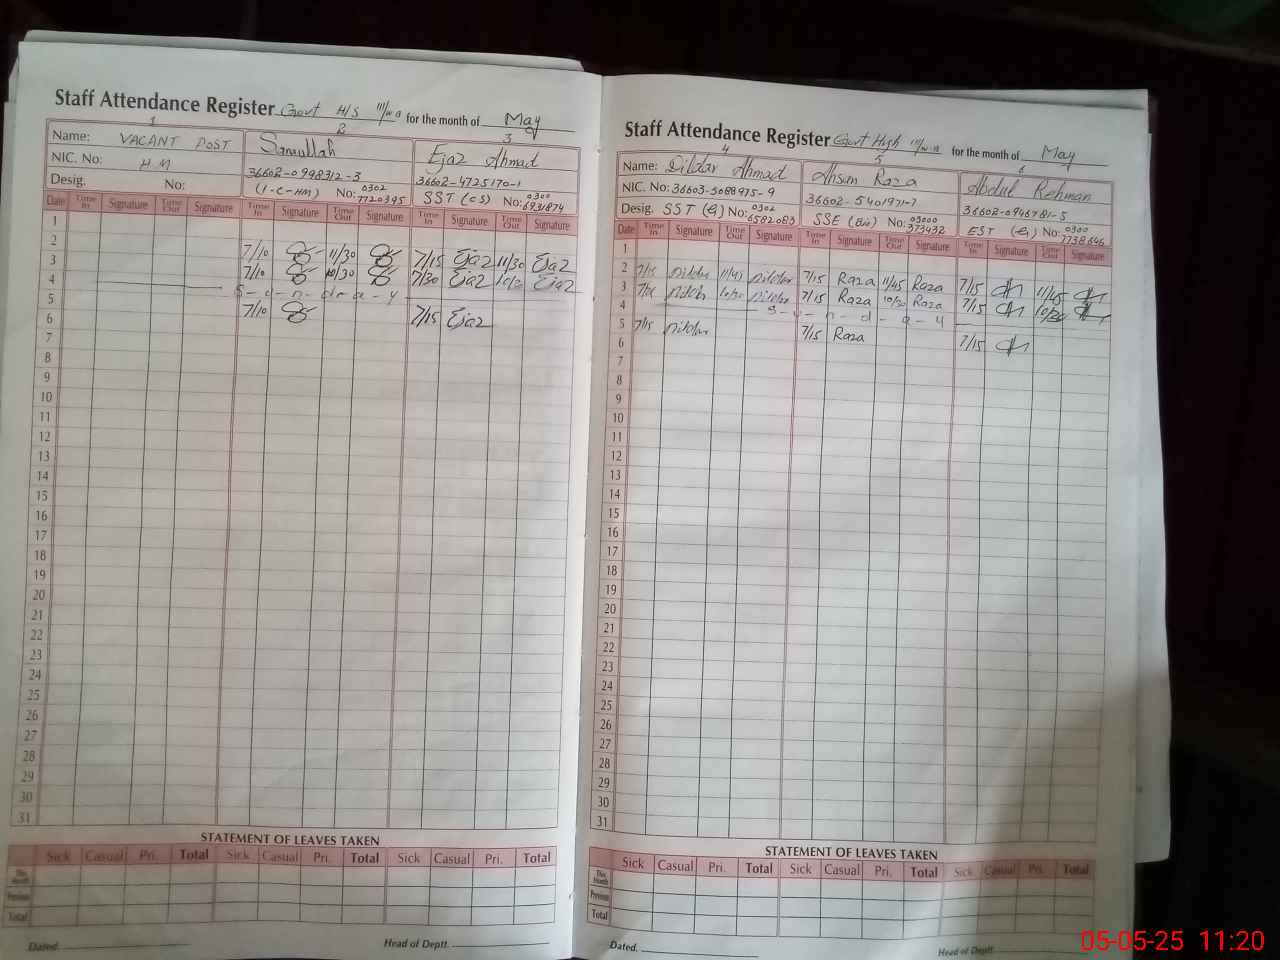 Staff Attendance Register Govt H/S 111/W.B for the month of May
1 2 3
Name: VACANT POST Sanaullah Ejaz Ahmad
NIC. No: H.M 36602-0998312-3 36602-4725170-1
Desig. No: (I-C-HM) No: 0302 7720395 SST (CS) 0300 6931874
Date Time In Signature Time Out Signature Time In Signature Time Out Signature Time In Signature Time Out Signature
1
2 7/10 11/30 7/15 Ejaz 11/30 Ejaz
3 7/10 10/30 7/30 Ejaz Ejaz
4 S-u-n-d-a-y
5 7/10 7/15 Ejaz
6
7
8
9
10
11
12
13
14
15
16
17
18
19
20
21
22
23
24
25
26
27
28
29
30
31
STATEMENT OF LEAVES TAKEN
Sick Casual Pri. Total Sick Casual Pri. Total Sick Casual Pri. Total
This Month
Previous
Total
Dated. Head of Deptt.
Staff Attendance Register Govt High for the month of May
4 5 6
Name: Dildar Ahmad Ahsan Raza Abdul Rehman
NIC. No: 36603-5088975-9 36602-5401971-7 36602-0946781-5
Desig. SST No: 0302 6582083 SSE (Bio) No: 03000 373432 EST 0300 7738646
Date Time In Signature Time Out Signature Time In Signature Time Out Signature Time In Signature Time Out Signature
1
2 7/15 Dildar 11/45 Dildar 7/15 Raza 11/45 Raza 7/15 11/45
3 Dildar Dildar 7/15 Raza Raza 7/15
4 S-u-n-d-a-y
5 7/15 Dildar 7/15 Raza 7/15
6
7
8
9
10
11
12
13
14
15
16
17
18
19
20
21
22
23
24
25
26
27
28
29
30
31
STATEMENT OF LEAVES TAKEN
Sick Casual Pri. Total Sick Casual Pri. Total Sick Casual Pri. Total
This Month
Previous
Total
Dated. Head of Deptt.
05-05-25 11:20